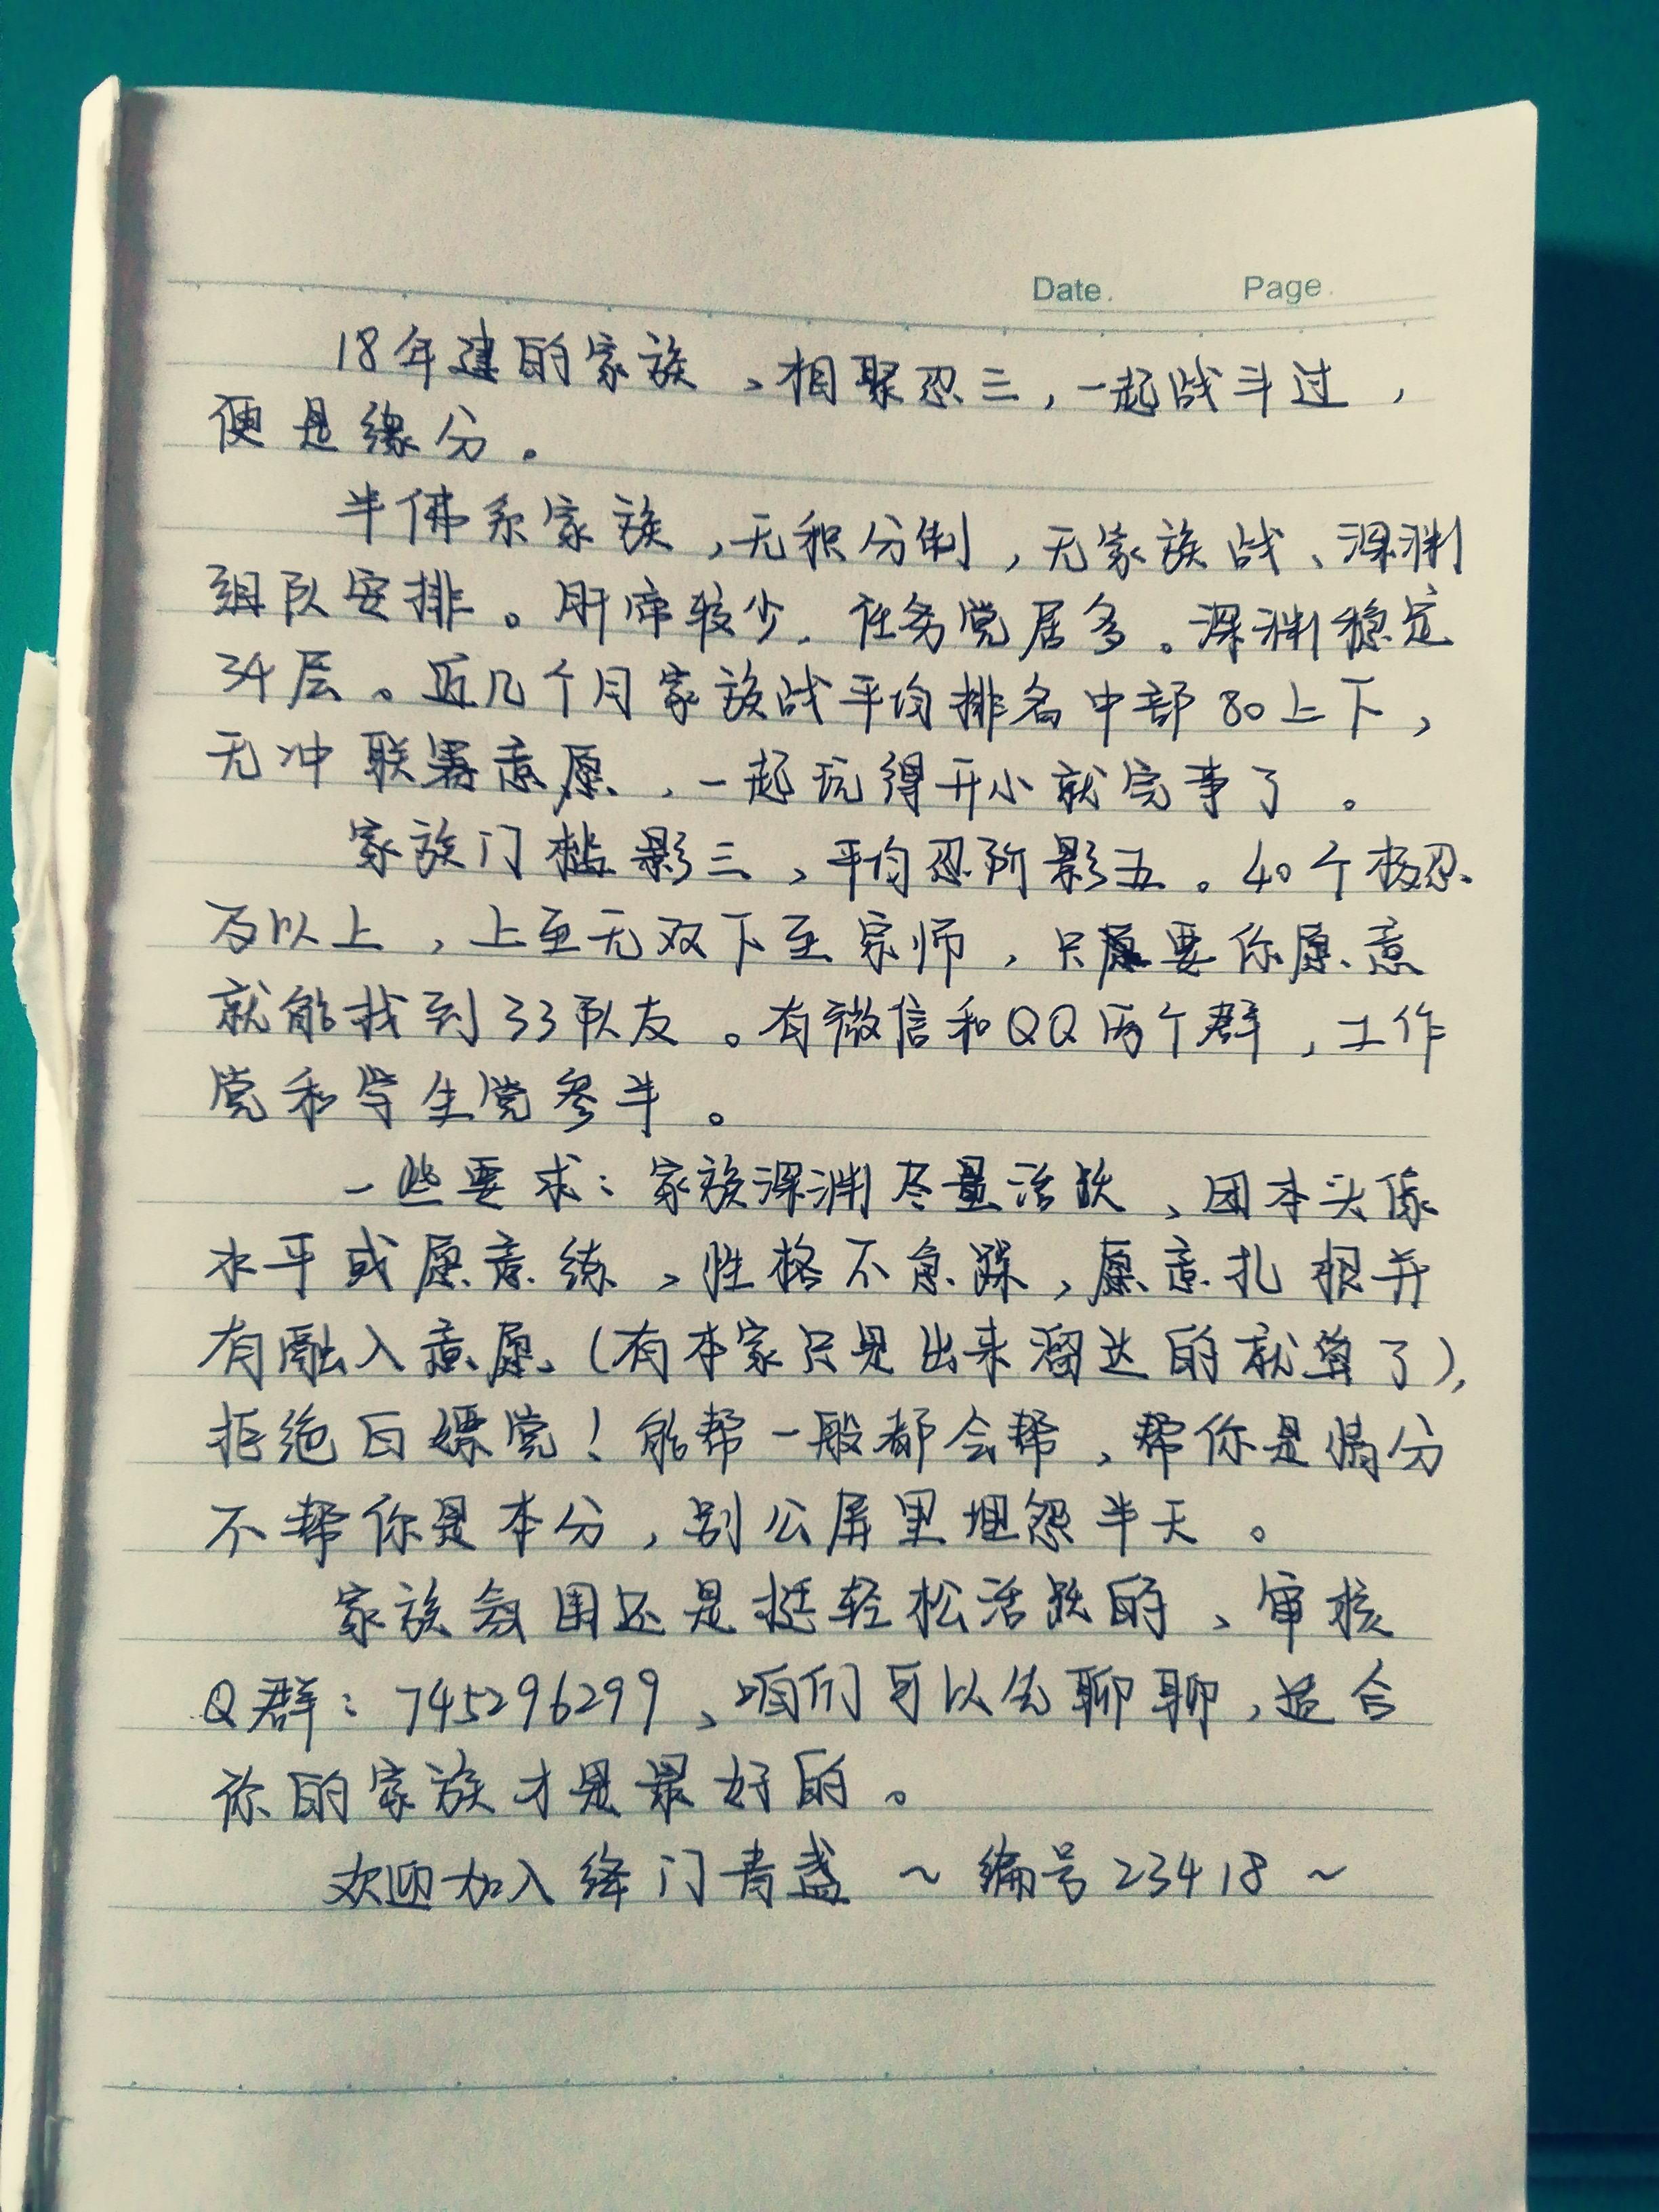 Date. Page.
18年建的家族，相聚忍三，一起战斗过，
便是缘分。
半佛系家族，无积分制，无家族战、深渊
组队安排。肝帝较少，任务党居多。深渊稳定
34层。近几个月家族战平均排名中部80上下，
无冲联赛意愿，一起玩得开小就完事了。
家族门槛影三，平均忍阶影五。40个极忍
及以上，上至无双下至宗师，只要你愿意
就能找到33队友。有微信和QQ两个群，工作
党和学生党参半。
一些要求：家族深渊尽量活跃、团本头像
水平或愿意练，性格不急躁，愿意扎根并
有融入意愿（有本家只是出来溜达的就算了），
拒绝白嫖党！能帮一般都会帮，帮你是情分
不帮你是本分，别公屏里埋怨半天。
家族氛围还是挺轻松活跃的、审核
Q群：745296299、咱们可以先聊聊，适合
你的家族才是最好的。
欢迎加入绛门青盏～编号23418～